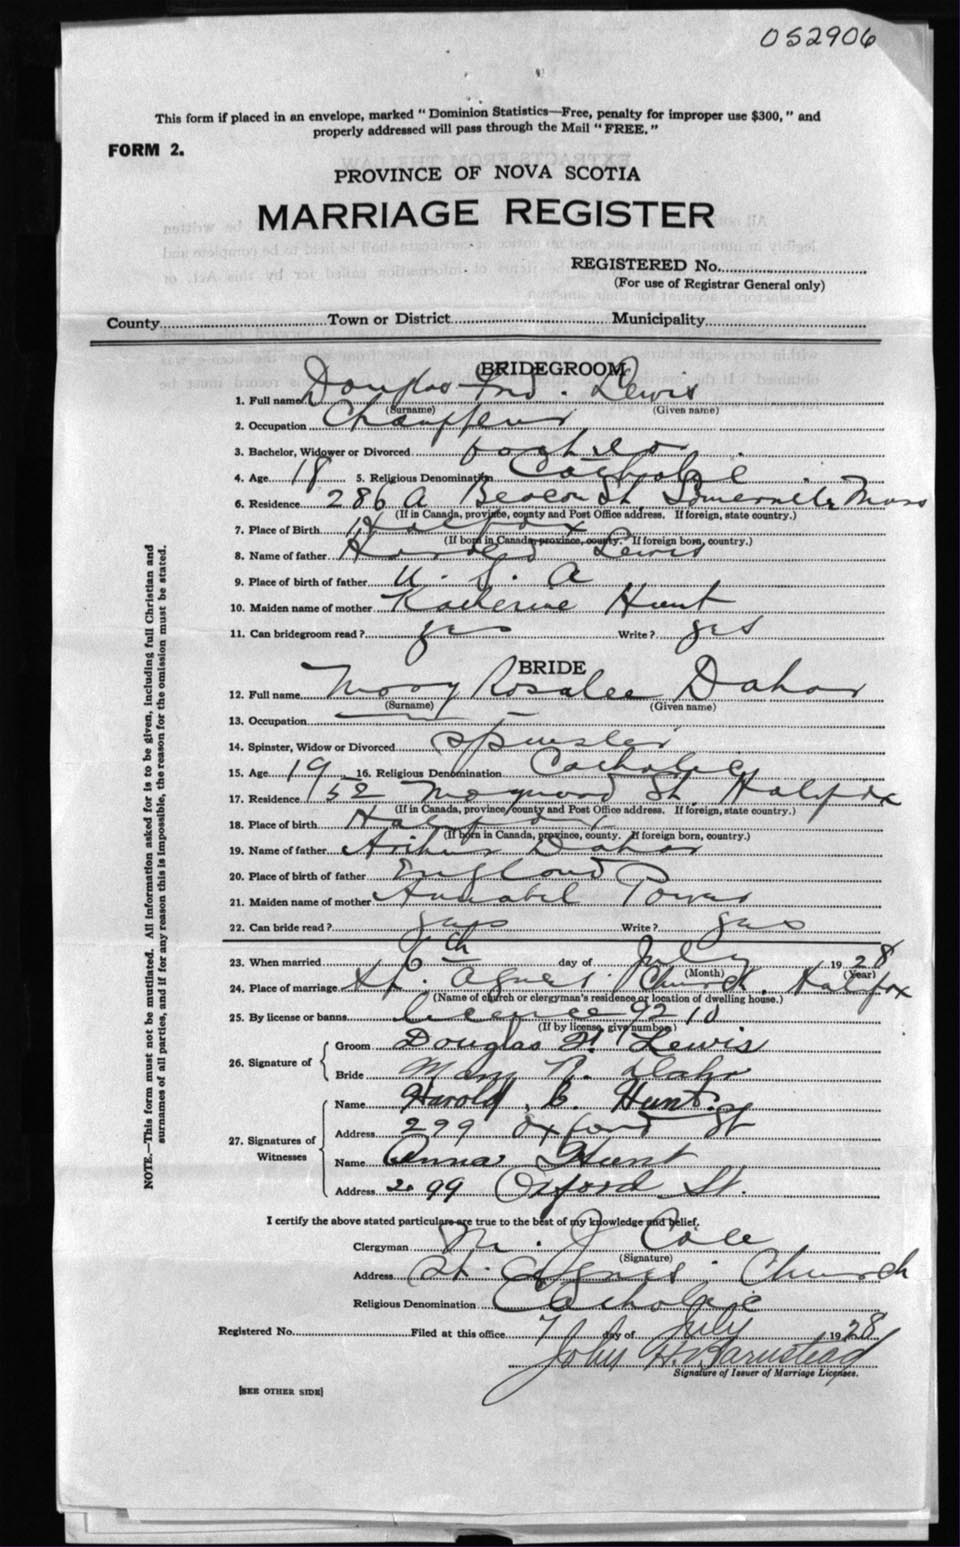 052906
This form if placed in an envelope, marked "Dominion Statistics—Free, penalty for improper use $300," and
properly addressed will pass through the Mail "FREE."
FORM 2.
PROVINCE OF NOVA SCOTIA
MARRIAGE REGISTER
REGISTERED No.
(For use of Registrar General only)
County Town or District Municipality
BRIDEGROOM
1. Full name Douglas Lewis
(Surname) (Given name)
2. Occupation Chauffeur
3. Bachelor, Widower or Divorced
4. Age 18 5. Religious Denomination Catholic
6. Residence 286 A Beacon St. Somerville Mass
(If in Canada, province, county and Post Office address. If foreign, state country.)
7. Place of Birth Halifax
(If born in Canada, province, county. If foreign born, country.)
8. Name of father Harold Lewis
9. Place of birth of father U. S. A
10. Maiden name of mother Katherine Hunt
11. Can bridegroom read? yes Write? yes
BRIDE
12. Full name Mary Rosalee Dahar
(Surname) (Given name)
13. Occupation
14. Spinster, Widow or Divorced spinster
15. Age 19 16. Religious Denomination Catholic
17. Residence 52 Maynard St. Halifax
(If in Canada, province, county and Post Office address. If foreign, state country.)
18. Place of birth Halifax
(If born in Canada, province, county. If foreign born, country.)
19. Name of father Arthur Dahar
20. Place of birth of father England
21. Maiden name of mother Annabel Power
22. Can bride read? yes Write? yes
23. When married day of July 1928
(Month) (Year)
24. Place of marriage St. Agnes Church. Halifax
(Name of church or clergyman's residence or location of dwelling house.)
25. By license or banns Licence 9210
(If by license, give number)
26. Signature of
Groom Douglas Lewis
Bride Mary R. Dahr
27. Signatures of Witnesses
Name Harold C. Hunt.
Address 299 Oxford St
Name Anna Hunt
Address 299 Oxford St.
I certify the above stated particulars are true to the best of my knowledge and belief.
Clergyman M. J. Cole
(Signature)
Address St. Agnes Church
Religious Denomination Catholic
Registered No. Filed at this office 7 day of July 1928
John H. Barnstead
Signature of Issuer of Marriage Licenses.
[SEE OTHER SIDE]
NOTE.—This form must not be mutilated. All information asked for is to be given, including full Christian and
surnames of all parties, and if for any reason this is impossible, the reason for the omission must be stated.